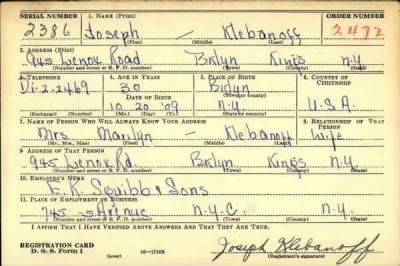 SERIAL NUMBER 1. NAME (Print) ORDER NUMBER
2386 Joseph — Klebanoff 2472
(First) (Middle) (Last)
2. ADDRESS (Print)
945 Lenox Road Bklyn Kings N.Y
(Number and street or R. F. D. number) (Town) (County) (State)
3. TELEPHONE 4. AGE IN YEARS 5. PLACE OF BIRTH 6. COUNTRY OF CITIZENSHIP
Di-2-2469 30 Bklyn
DATE OF BIRTH (Town or county)
10 20 '09 N.Y U.S.A.
(Exchange) (Number) (Mo.) (Day) (Yr.) (State or country)
7. NAME OF PERSON WHO WILL ALWAYS KNOW YOUR ADDRESS 8. RELATIONSHIP OF THAT PERSON
Mrs Marilyn — Klebanoff Wife
(Mr., Mrs., Miss) (First) (Middle) (Last)
9. ADDRESS OF THAT PERSON
945 Lenox Rd. Bklyn Kings N.Y
(Number and street or R. F. D. number) (Town) (County) (State)
10. EMPLOYER'S NAME
E. R. Squibb & Sons
11. PLACE OF EMPLOYMENT OR BUSINESS
745 5 Avenue N.Y.C. N.Y.
(Number and street or R. F. D. number) (Town) (County) (State)
I AFFIRM THAT I HAVE VERIFIED ABOVE ANSWERS AND THAT THEY ARE TRUE.
REGISTRATION CARD
D. S. S. Form 1 (over) 16—17105 Joseph Klebanoff
(Registrant's signature)